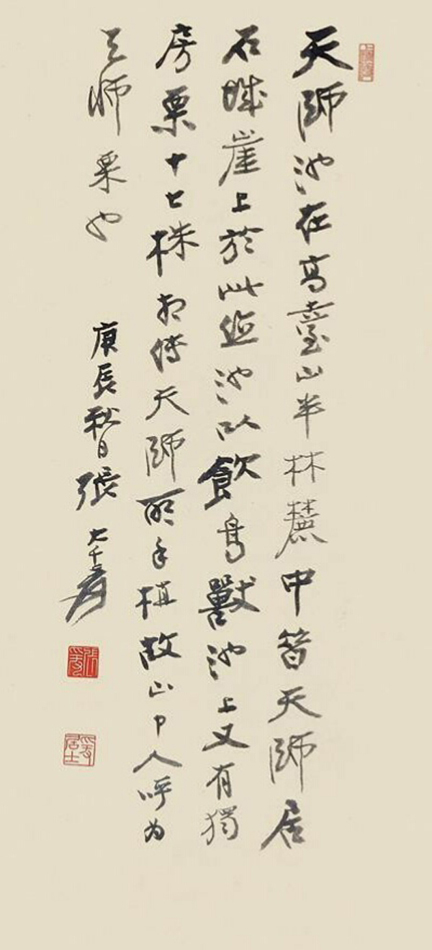 天師池在高臺山半林麓中昔天師居
石城崖上於此池以飲鳥獸池上又有獨
房栗十七株相傳天師所手植故山中人呼為
天師栗也
庚辰秋日張大千爰
張爰